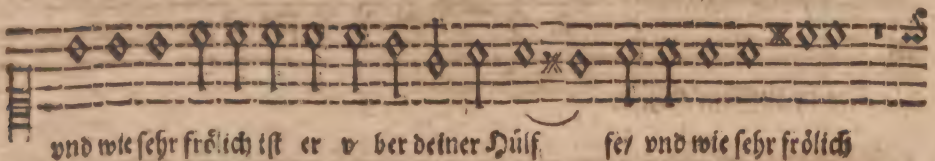 vnd wie sehr frölich ist er v ber deiner Hülf fe/ vnd wie sehr frölich